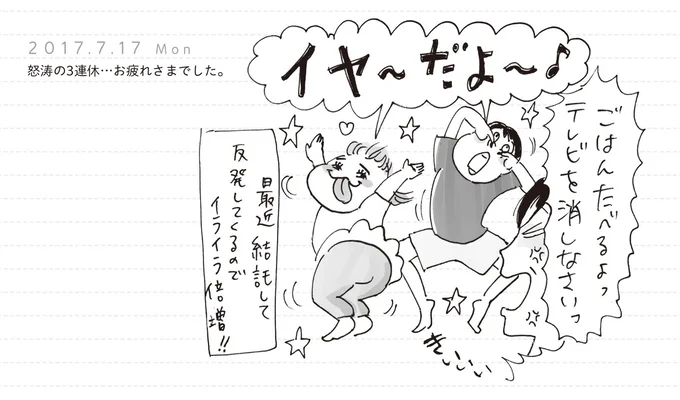 2017.7.17 Mon
怒涛の3連休…お疲れさまでした。
イヤ〜だよ〜♪
ごはんたべるよっ
テレビを消しなさいっ
最近結託して
反発してくるので
イライラ倍増!!
きいいい